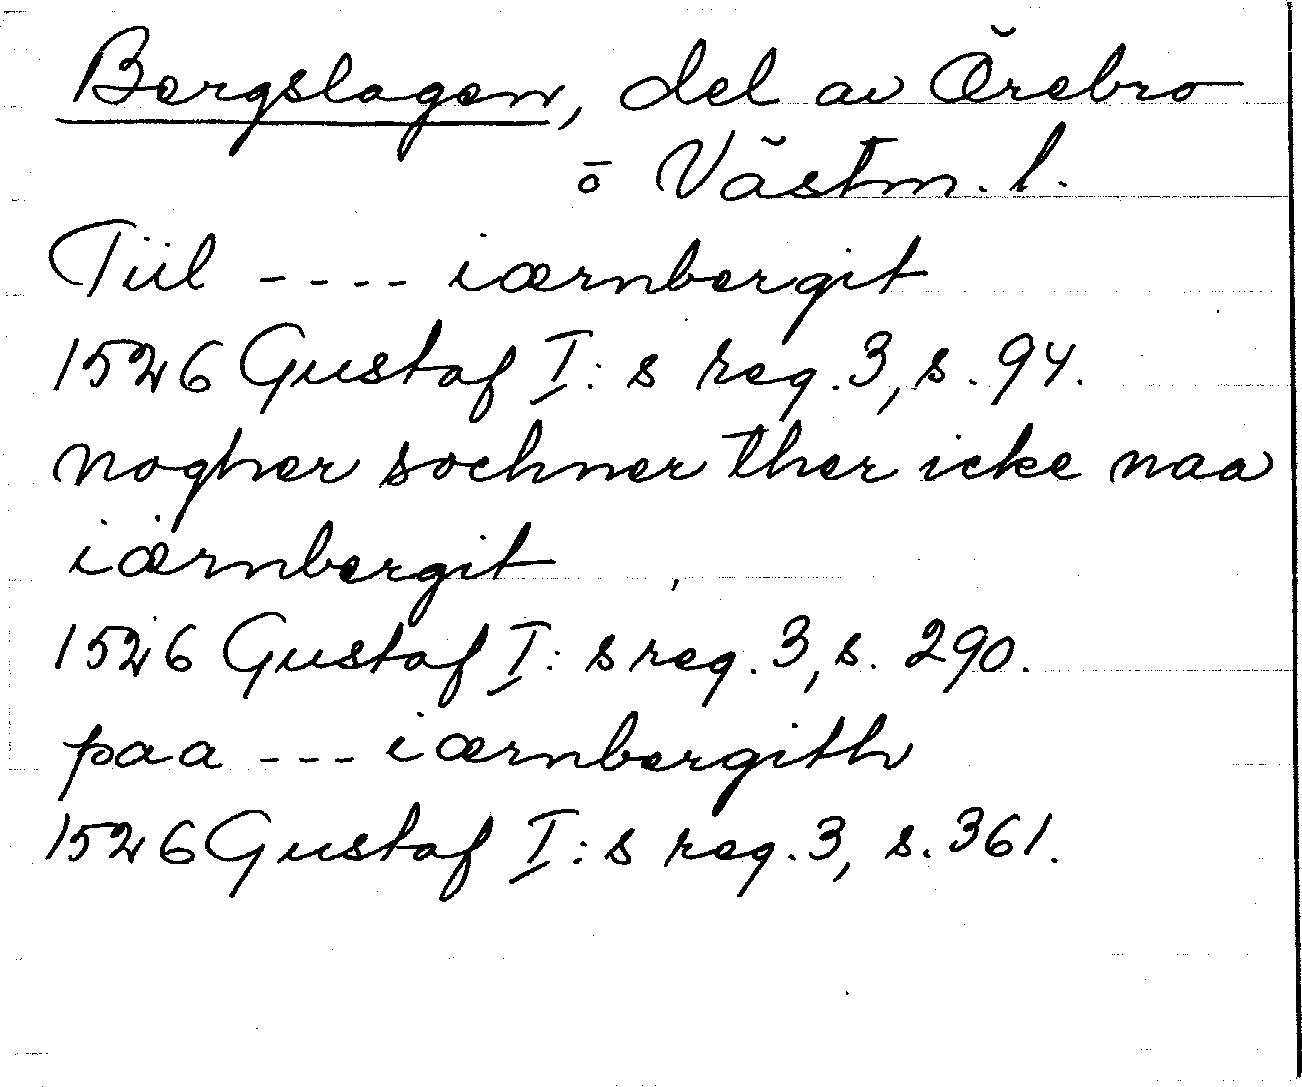 Bergslagen, del av Örebro
o Västm. l.
Tiil ---- iærnbergit
1526 Gustaf I:s reg. 3, s. 94.
nogher sochner ther icke naa
iærnbergit
1526 Gustaf I:s reg. 3, s. 290.
paa --- iærnbergith
1526 Gustaf I:s reg. 3, s. 361.